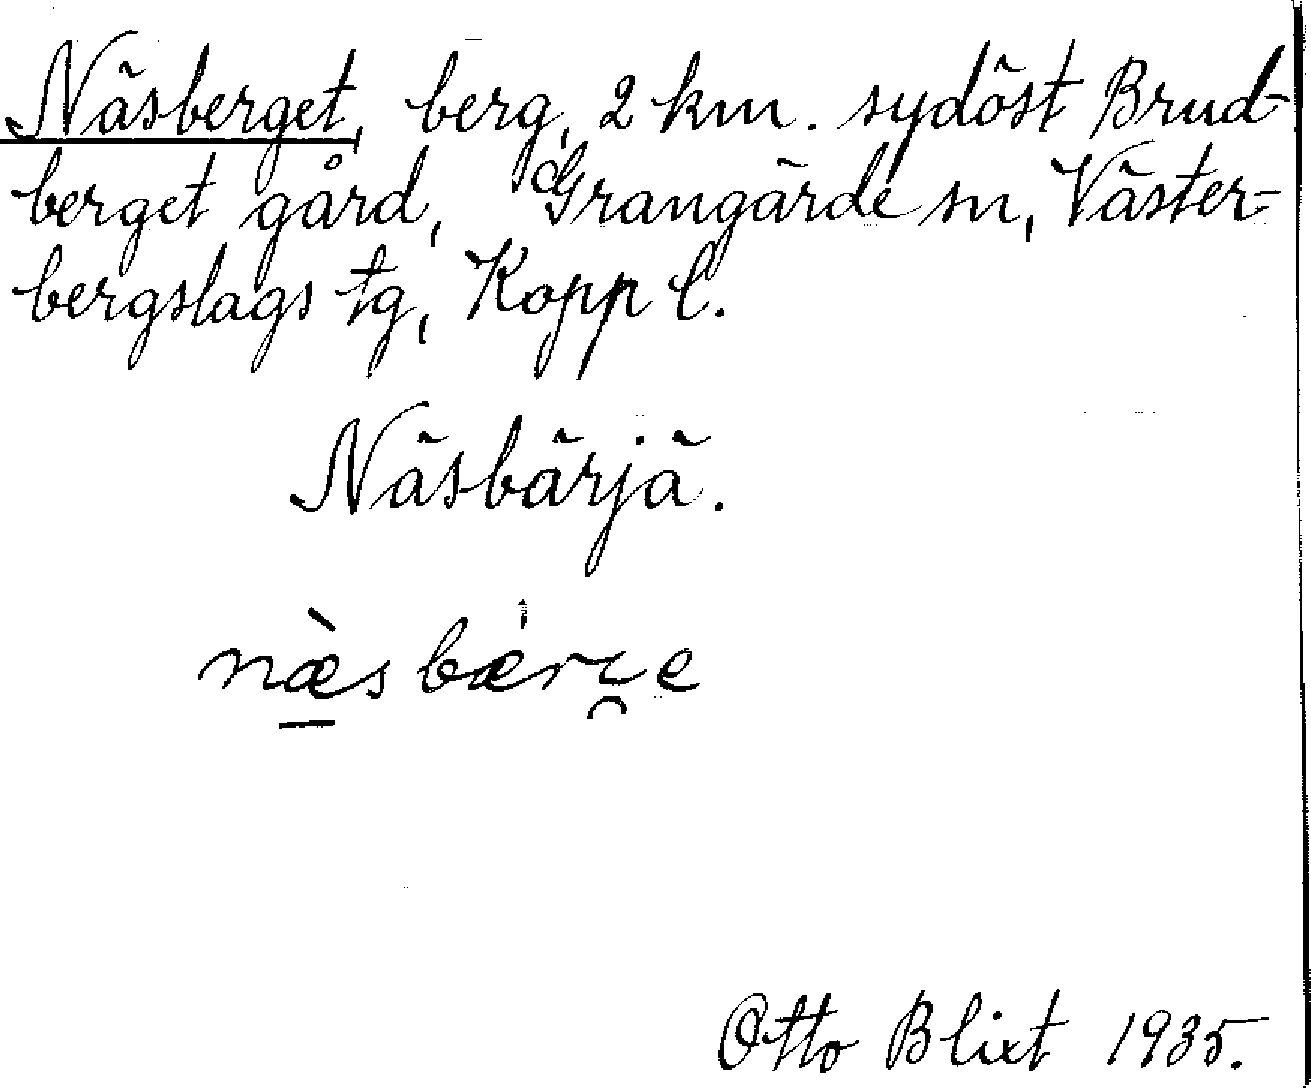 Näsberget, berg, 2 km. sydöst Brud-
berget gård, Grangärde sn, Väster-
bergslags tg, Kopp l.
Näsbärjä.
Otto Blixt 1935.